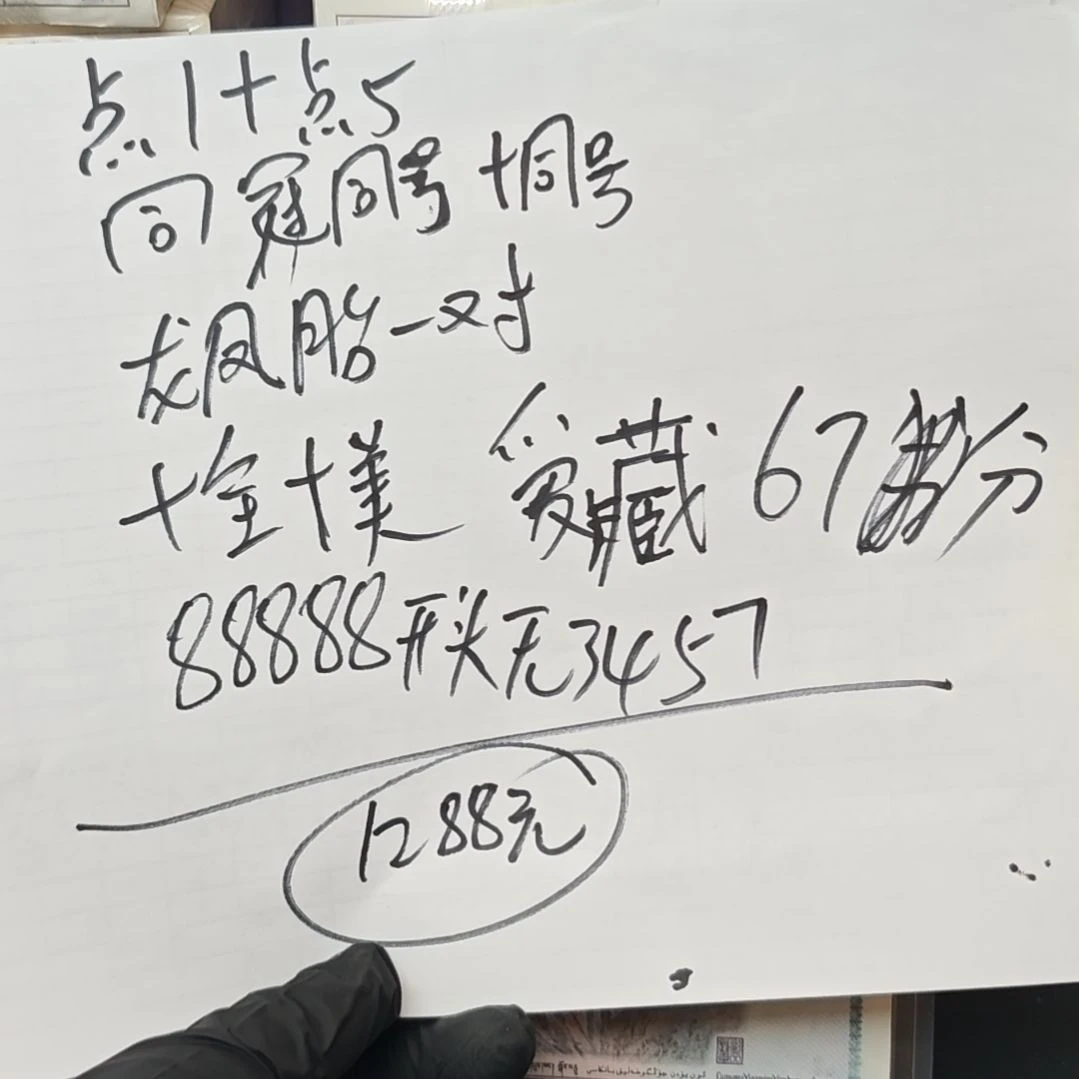 点1+点5
同冠同号+同号
龙凤胎一对
十全十美 爱藏67分
88888开头无3457
1288元